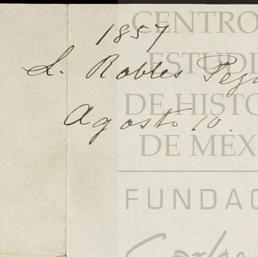 1857
L. Robles Pezu
Agosto 10.
CENTRO
ESTUDI
DE HISTO
DE MÉX
FUNDAC
Carlos